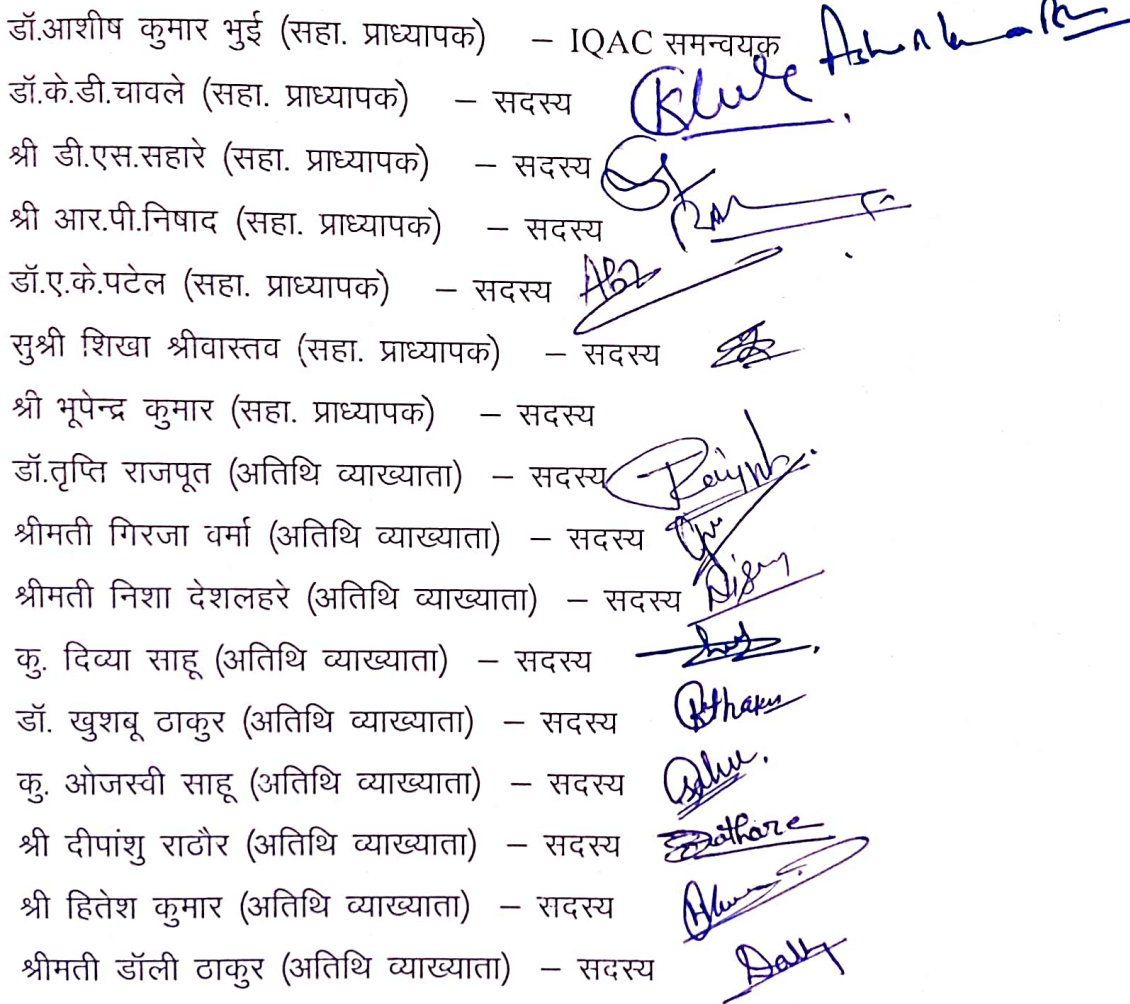 डॉ.आशीष कुमार भुई (सहा. प्राध्यापक) – IQAC समन्वयक
डॉ.के.डी.चावले (सहा. प्राध्यापक) – सदस्य
श्री डी.एस.सहारे (सहा. प्राध्यापक) – सदस्य
श्री आर.पी.निषाद (सहा. प्राध्यापक) – सदस्य
डॉ.ए.के.पटेल (सहा. प्राध्यापक) – सदस्य
सुश्री शिखा श्रीवास्तव (सहा. प्राध्यापक) – सदस्य
श्री भूपेन्द्र कुमार (सहा. प्राध्यापक) – सदस्य
डॉ.तृप्ति राजपूत (अतिथि व्याख्याता) – सदस्य
श्रीमती गिरजा वर्मा (अतिथि व्याख्याता) – सदस्य
श्रीमती निशा देशलहरे (अतिथि व्याख्याता) – सदस्य
कु. दिव्या साहू (अतिथि व्याख्याता) – सदस्य
डॉ. खुशबू ठाकुर (अतिथि व्याख्याता) – सदस्य
कु. ओजस्वी साहू (अतिथि व्याख्याता) – सदस्य
श्री दीपांशु राठौर (अतिथि व्याख्याता) – सदस्य
श्री हितेश कुमार (अतिथि व्याख्याता) – सदस्य
श्रीमती डॉली ठाकुर (अतिथि व्याख्याता) – सदस्य